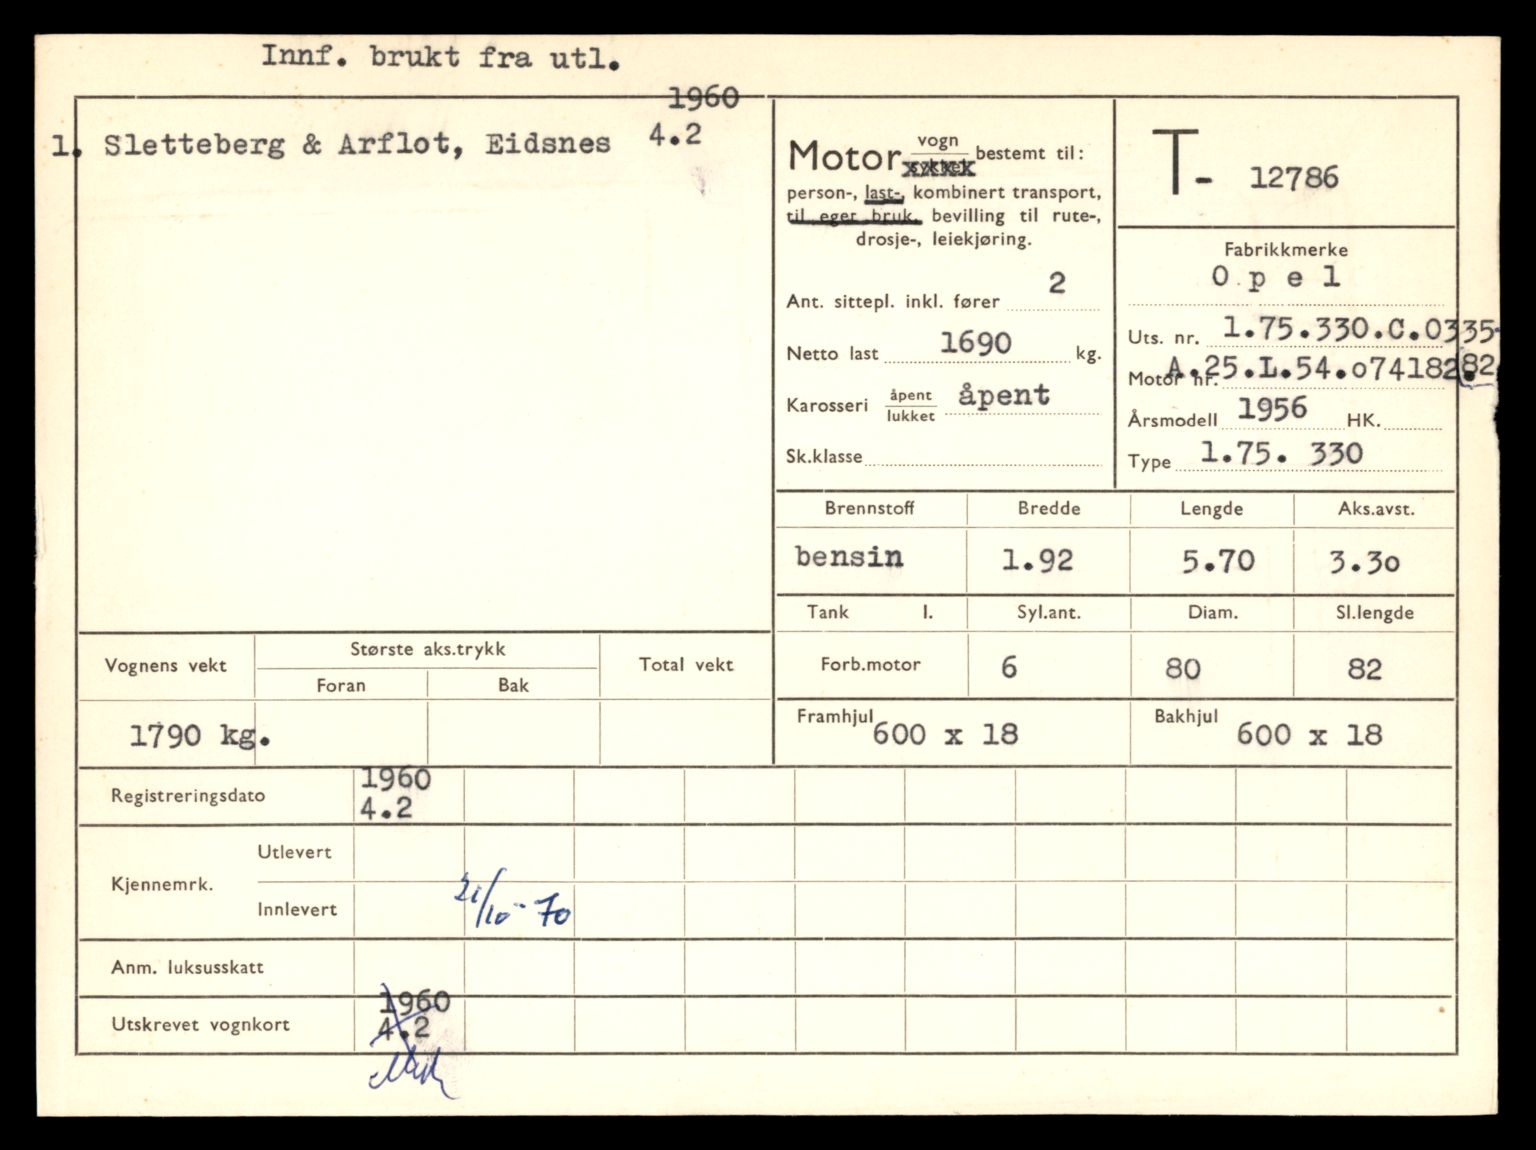 Innf. brukt fra utl.
1960
1. Sletteberg & Arflot, Eidsnes 4.2
Motor vogn bestemt til:
person-, last-, kombinert transport,
til eger bruk, bevilling til rute-,
drosje-, leiekjøring.
Ant. sittepl. inkl. fører 2
Netto last 1690 kg.
Karosseri åpent lukket åpent
Sk.klasse
T- 12786
Fabrikkmerke
Opel
Uts. nr. 1.75.330.C.0335-
82
Motor nr. A.25.L.54.o74182.
Årsmodell 1956 HK.
Type 1.75. 330
Brennstoff Bredde Lengde Aks.avst.
bensin 1.92 5.70 3.3o
Tank l. Syl.ant. Diam. Sl.lengde
Forb.motor 6 80 82
Framhjul 600 x 18 Bakhjul 600 x 18
Vognens vekt Største aks.trykk Total vekt
Foran Bak
1790 kg.
Registreringsdato 1960
4.2
Kjennemrk. Utlevert
Innlevert 21/10-70
Anm. luksusskatt
Utskrevet vognkort 1960
4.2